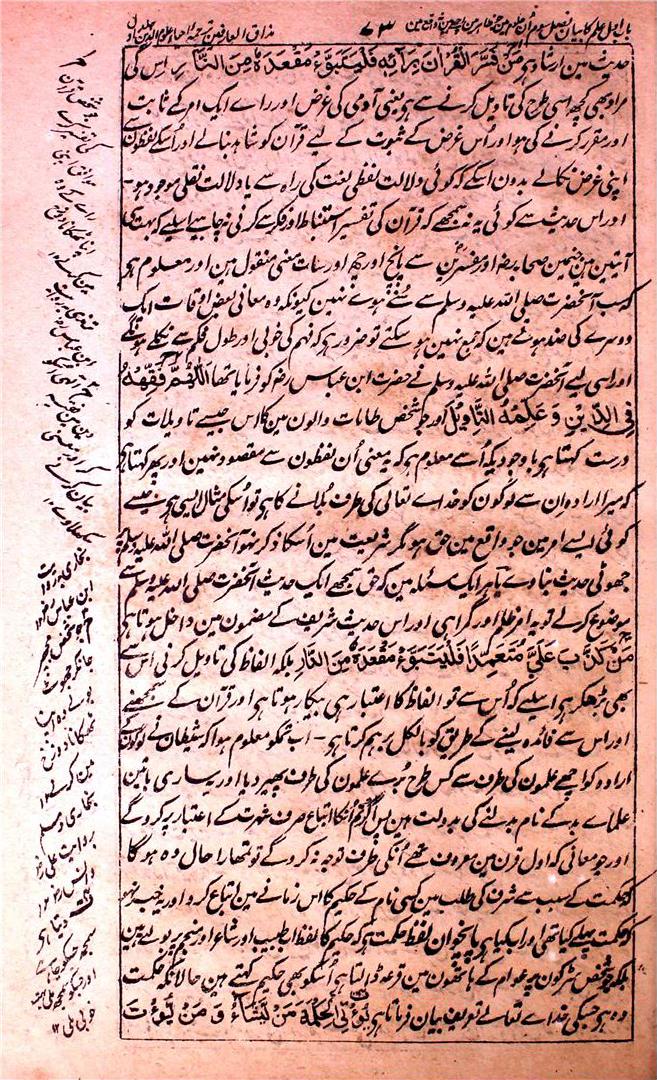 مذاق العارفین ترجمہ احیاء علوم الدین جلد اول
۷۳
حدیث مین ارشاد ہو مَنْ فَسَّرَ الْقُرْآنَ بِرَأْیِہٖ فَلْیَتَبَوَّءْ مَقْعَدَہٗ مِنَ النَّارِ اس کی
مراد بھی کچھ اسی طرح کی تاویل کرنے سے ہو یعنی آدمی کی غرض اور راے ایک امر کے ثابت
اور مقرر کرنے کی ہو اور اُس غرض کے ثبوت کے لیے قرآن کو شاہد بنالے اور اُسکے لفظون سے
اپنی غرض نکالے بدون اسکے کہ کوئی دلالت لفظی لغت کی راہ سے یا دلالت نقلی موجود ہو۔
اور اس حدیث سے کوئی یہ نہ سمجھے کہ قرآن کی تفسیر استنباط اور فکر سے کرنی نہ چاہیے اسلیے کہ بہت سی
آیتین ہین جنمین صحابہ رض اور مفسرین سے پانچ اور چھ اور سات معنی منقول ہین اور معلوم ہو
کہ سب آنحضرت صلی اللہ علیہ وسلم سے سُنے ہوے نہین کیونکہ وہ معانی بعض اوقات ایک
دوسرے کی ضد ہوتے ہین کہ جمع نہین ہو سکتے تو ضرور ہو کہ فہم کی خوبی اور طول فکر سے نکلے ہونگے
اور اسی لیے آنحضرت صلی اللہ علیہ وسلم نے حضرت ابن عباس رض کو فرمایا تھا اَللّٰہُمَّ فَقِّہْہُ
فِی الدِّیْنِ وَ عَلِّمْہُ التَّاوِیْلَ اور جو شخص طامات والون مین کا اس جیسے تاویلات کو
درست کہتا ہو باوجودیکہ اُسے معلوم ہو کہ یہ معنی اُن لفظون سے مقصود نہین اور پھر کہتا ہو
کہ میرا ارادہ ان سے لوگون کو خداے تعالی کی طرف بُلانے کا ہو تو اُسکی مثال ایسی ہو جیسے
کوئی ایسے امر مین جو واقع مین حق ہو مگر شریعت مین اُسکا ذکر نہو آنحضرت صلی اللہ علیہ وسلم پر
جھوٹی حدیث بنا دے یا ہر ایک مسئلہ مین کہ حق سمجھے ایک حدیث آنحضرت صلی اللہ علیہ وسلم سے
موضوع کرلے تو یہ امر ظلم اور گمراہی اور اس حدیث شریف کے مضمون مین داخل ہوتا ہو
مَنْ کَذَّبَ عَلَیَّ مُتَعَمِّدًا فَلْیَتَبَوَّءْ مَقْعَدَہٗ مِنَ النَّارِ بلکہ الفاظ کی تاویل کرنی اُس سے
بھی بڑھکر ہو اسلیے کہ اُس سے تو الفاظ کا اعتبار ہی بیکار ہوتا ہو اور قرآن کے سمجھنے
اور اس سے فائدہ لینے کے طریق کو بالکل برہم کرتا ہو۔ اب تمکو معلوم ہوا کہ شیطان نے لوگون کے
ارادہ کو اچھے علمون کی طرف سے کس طرح بُرے علمون کی طرف پھیر دیا اور یہ ساری باتین
علماے بد کے نام بدلنے کی بدولت ہین پس اگر تم اُنکا اتباع صرف شہرت کے اعتبار پر کروگے
اور جو معانی کہ اول قرن مین معروف تھے اُنکی طرف توجہ نہ کروگے تو تمھارا حال وہ ہوگا
کہ حکمت کے سبب سے شرف کی طلب مین کسی نام کے حکیم کا اس زمانے مین اتباع کرو اور یہ خبر نہو
کہ حکمت پہلے کیا تھی اور اب کیا ہو پانچوان لفظ حکمت ہو کہ حکیم کا لفظ اب طبیب اور شاعر اور منجم پر بولتے ہین
بلکہ جو شخص سڑکون پر عوام کے ہاتھون مین قرعہ ڈالتا ہو اُسکو بھی حکیم کہتے ہین حالانکہ حکمت
وہ ہو جسکی خداے تعالے تعریف بیان فرماتا ہو یُؤْتِی الْحِکْمَۃَ مَنْ یَّشَاءُ وَ مَنْ یُّؤْتَ